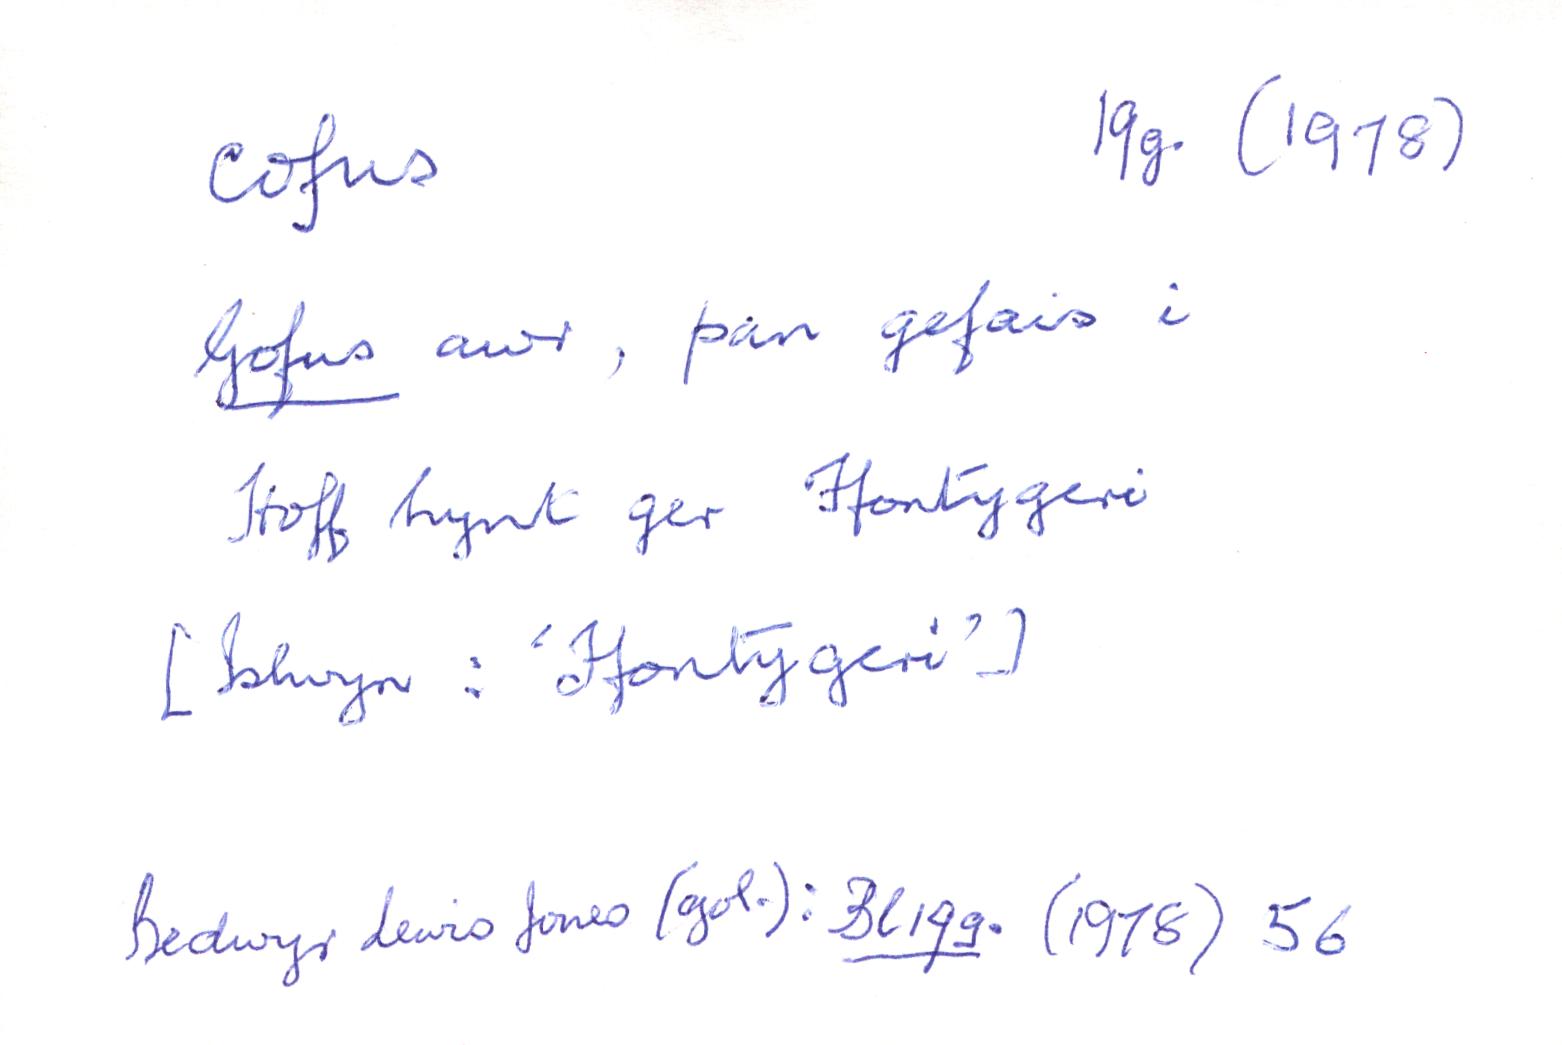 cofus 19g. (1978)
Gofus awr, pan gefais i
Hoff hynt ger Ffontygeri
[Islwyn : ‘Ffontygeri’]
Bedwyr Lewis Jones (gol.): Bl19g. (1978) 56